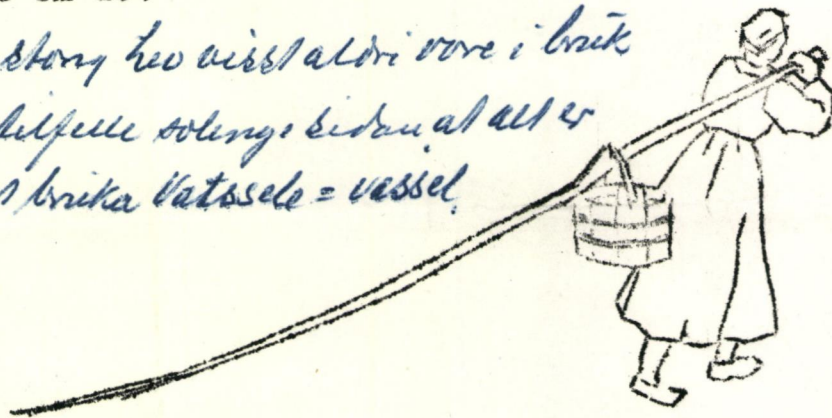 stong hev visst aldri vore i bruk
tilfelle so lenge sidan at alt er
bruka Vatssele = vassel.